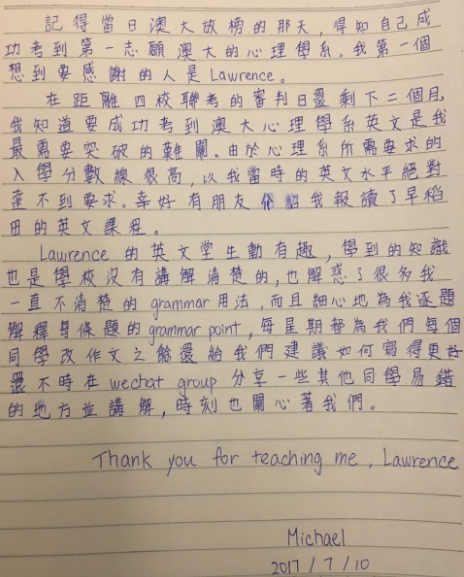 記得當日澳大放榜的那天，得知自己成
功考到第一志願澳大的心理學系。我第一個
想到要感謝的人是Lawrence。
在距離四校聯考的審判日還剩下二個月，
我知道要成功考到澳大心理學系英文是我
最需要突破的難關。由於心理系所需要求的
入學分數線很高，以我當時的英文水平絕對
達不到要求。幸好有朋友介紹我報讀了早稻
田的英文課程。
Lawrence 的英文堂生動有趣，學到的知識
也是學校沒有講解清楚的，也解惑了很多我
一直不清楚的 grammar 用法，而且細心地為我逐題
解釋每條題的grammar point，每星期都為我們每個
同學改作文之餘還給我們建議如何寫得更好
還不時在 wechat group 分享一些其他同學易錯
的地方並講解，時刻也關心著我們。
Thank you for teaching me, Lawrence
Michael
2017/7/10